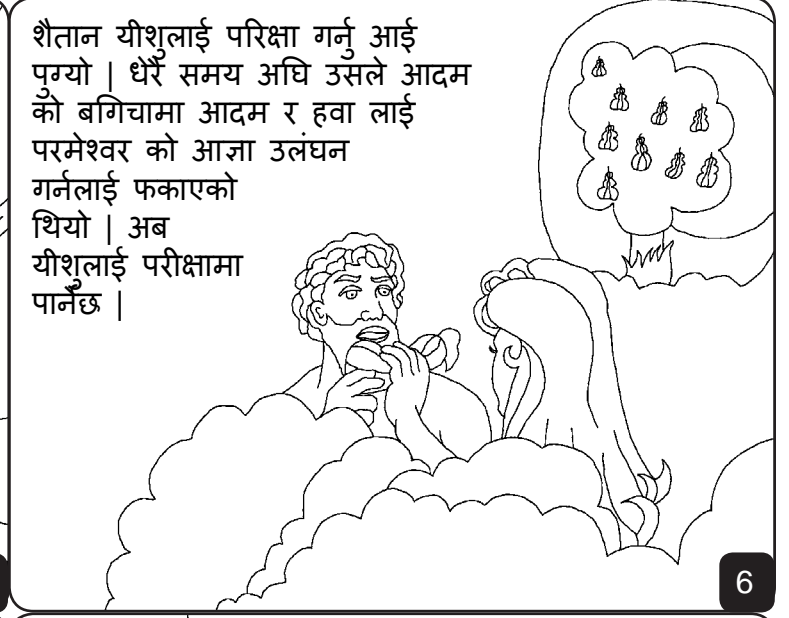 शैतान यीशुलाई परिक्षा गर्नु आई
पुग्यो | धेरै समय अघि उसले आदम
को बगिचामा आदम र हवा लाई
परमेश्वर को आज्ञा उलंघन
गर्नलाई फकाएको
थियो | अब
यीशुलाई परीक्षामा
पार्नेछ |
6